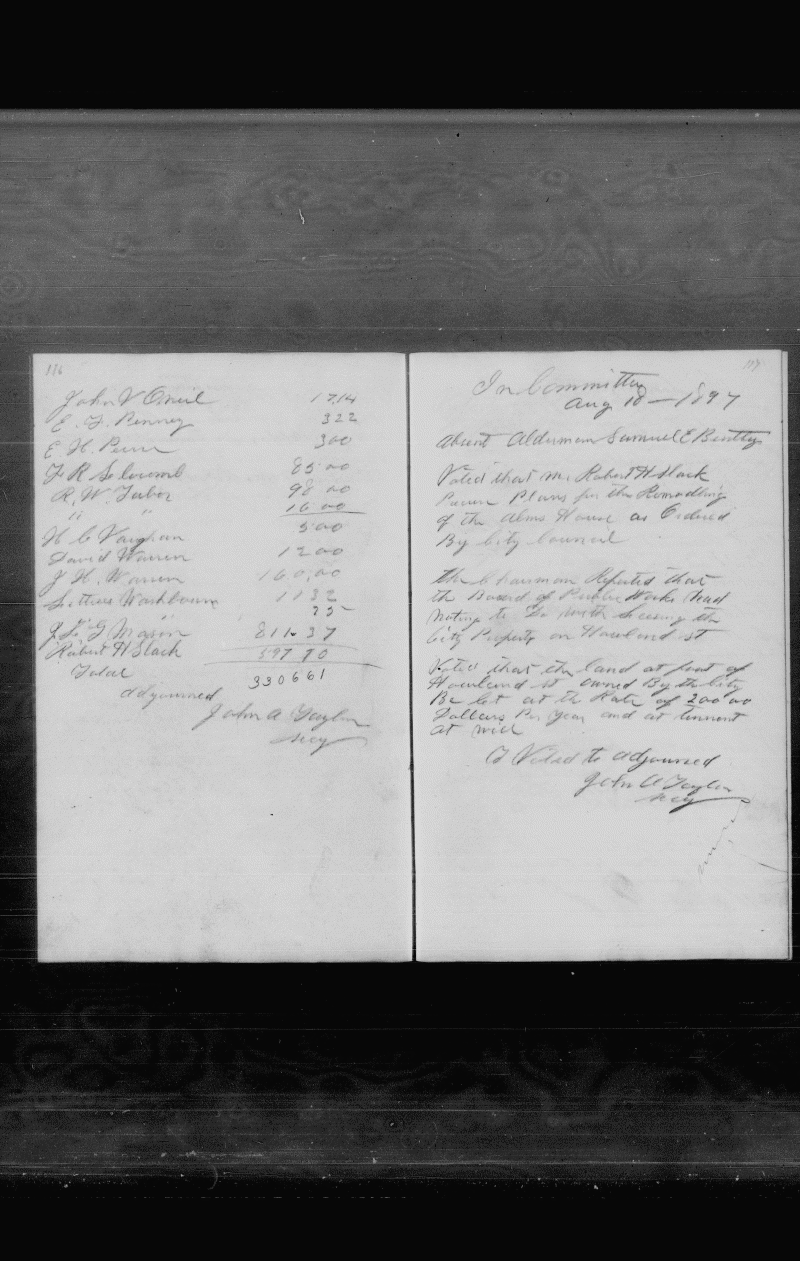 116
John V Oneil 17.14
E. F. Penney 3 22
E. H. 3 00
F R Slocomb 85 00
R. W. Tabor 98 00
" " 16 00
H C Vaughan 5 00
David Warren 12 00
J H. Warren 160,00
Washburn 11 32
" 25
J. & G Mason 811.37
Robert H Slack 597 70
Total 3306 61
adjourned
John A Taylor
secy
117
In Committee
Aug 10 — 1897
absent Alderman Samuel E Bentley
Voted that Mr Robert H Slack
Plans for the Remodling
of the Alms House as Ordered
By City Council
the Chairman Reported that
the Board of Public Works had
nothing to Do with the
City Property on Howland st
Voted that the land at foot of
Howland st owned By the City
Be let at the Rate of 200 00
Dollars Per year and at tennent
at will
Voted to adjourned
John A Taylor
secy